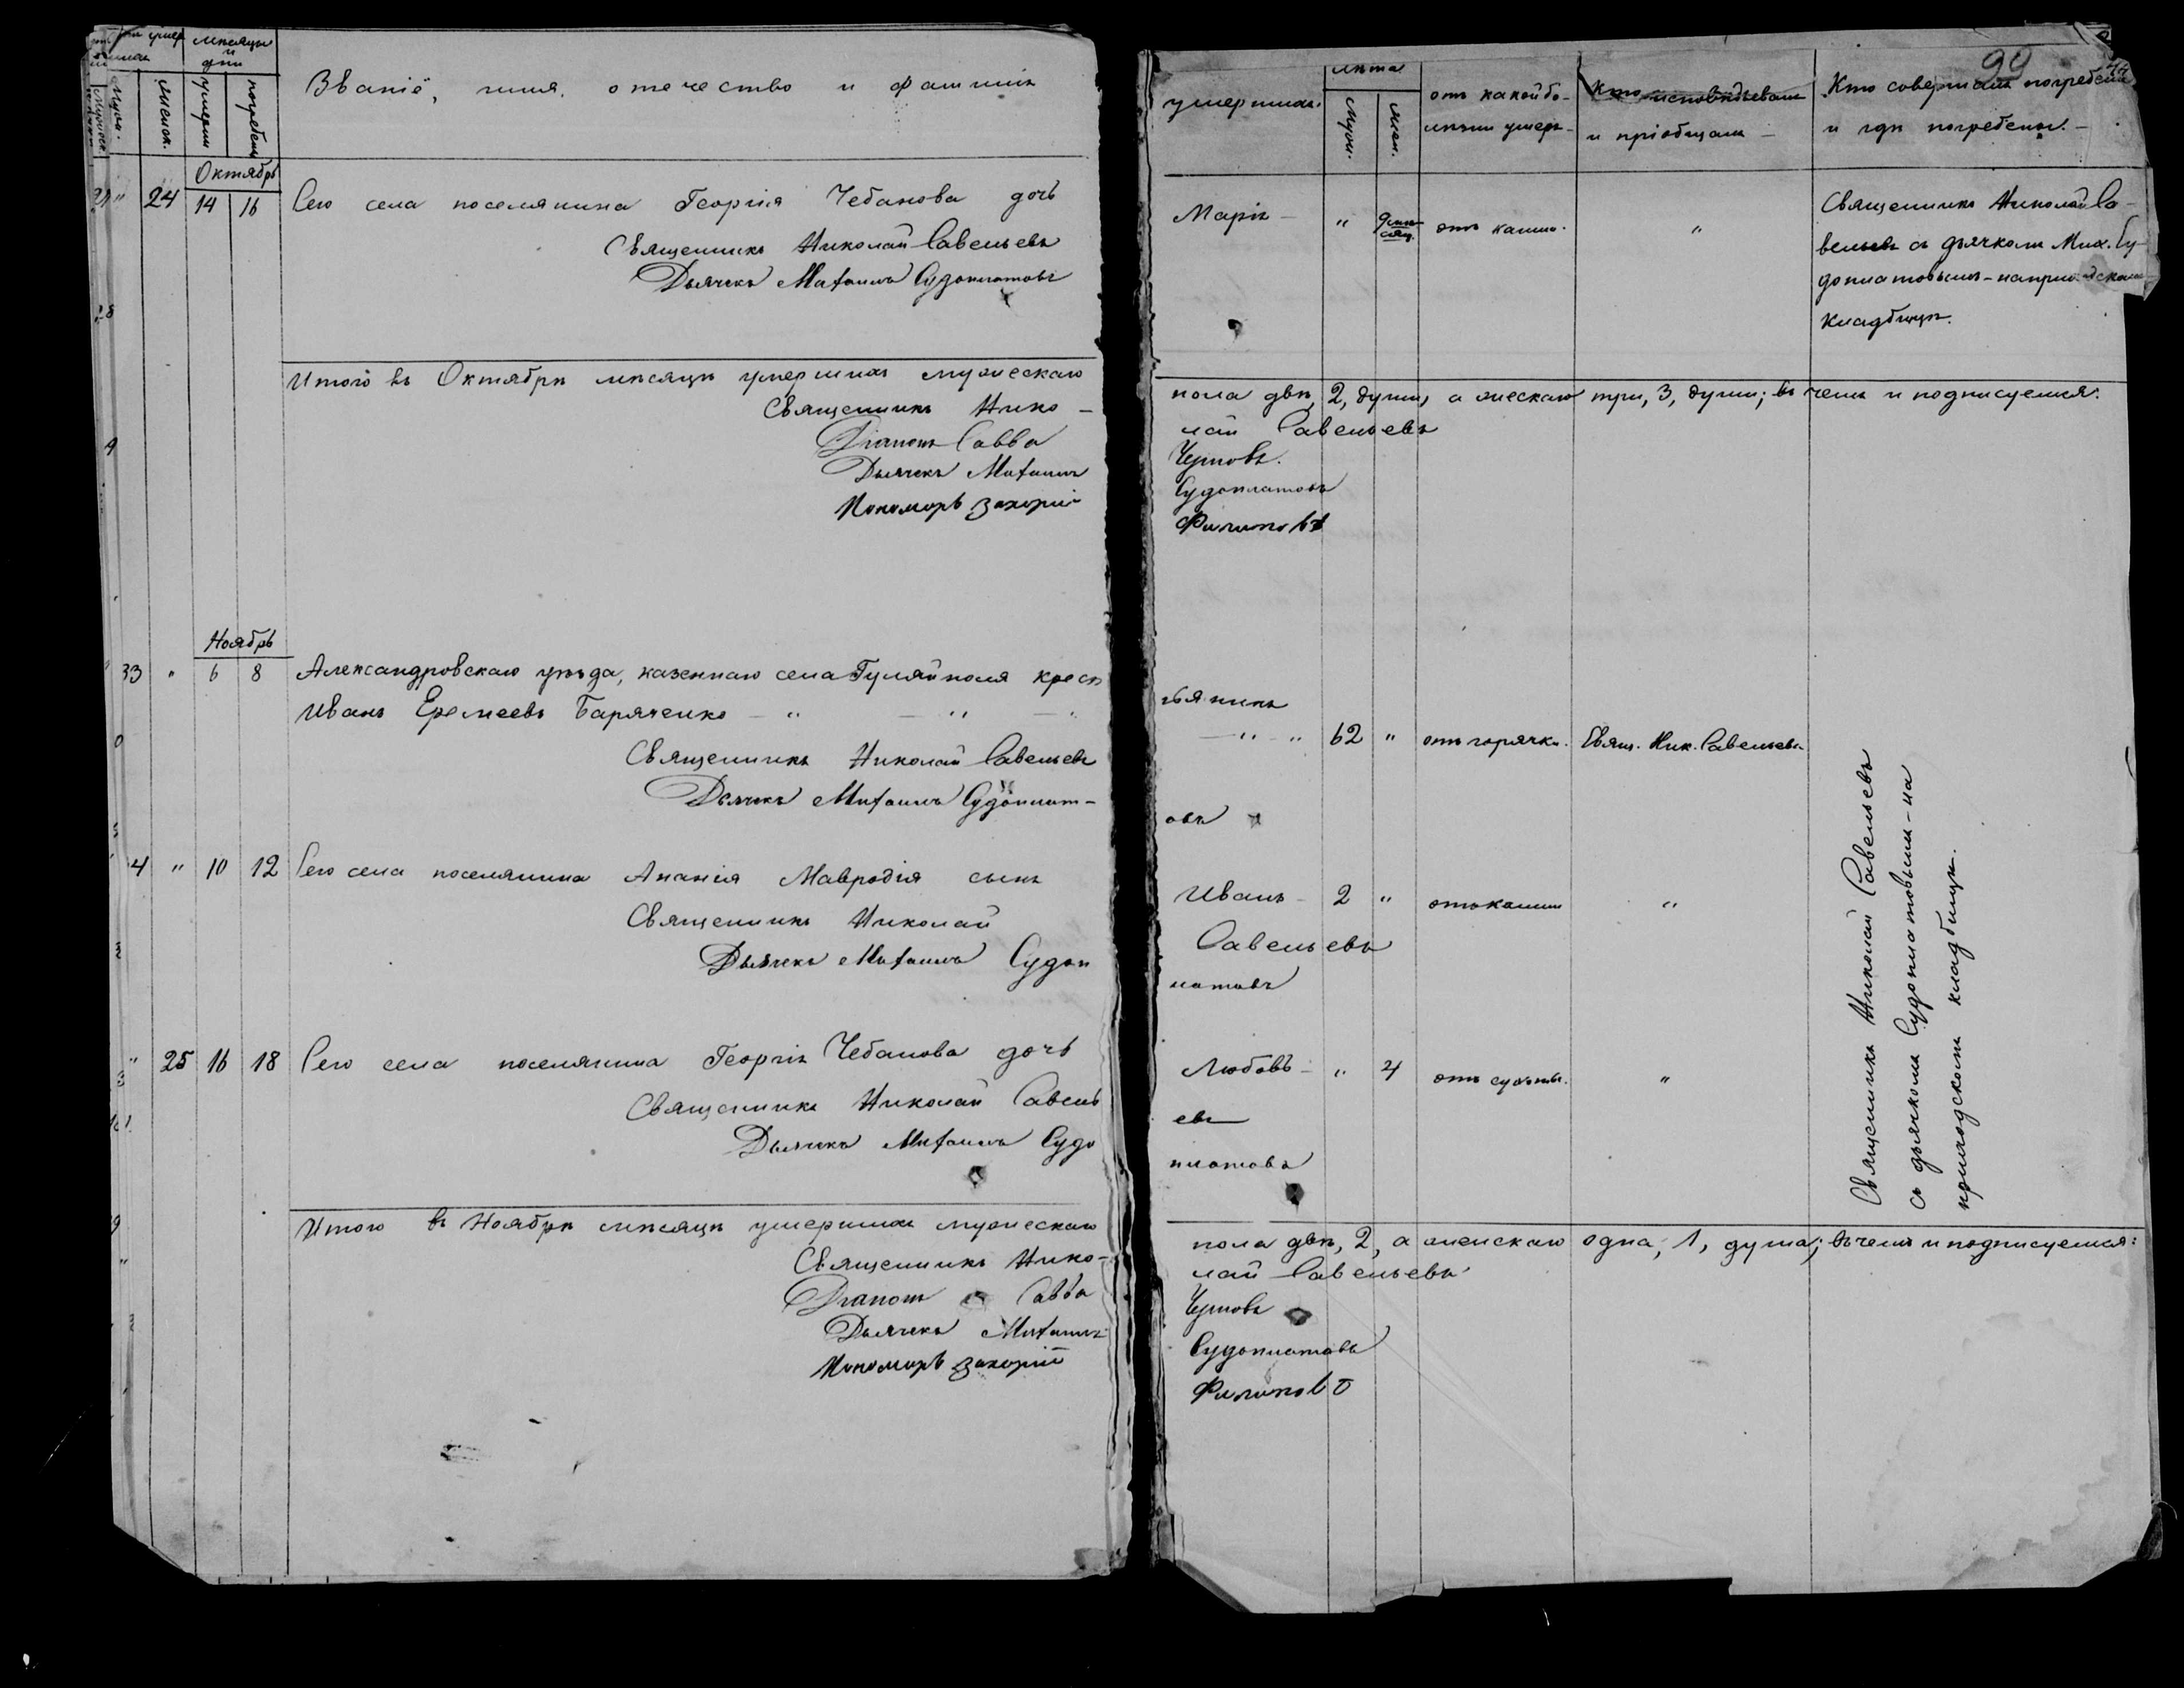 мѣсяцы
и
дни
Званіе, имя, отечество и фамилія
умершихъ.
лѣта
отъ какой бо-
лѣзни умеръ
Кто исповѣдывалъ
и пріобщалъ
Кто совершалъ погребеніе
и гдѣ погребены.
99
Мужск.
Женск.
умерш.
погребен.
Муж.
Жен.
Октябрь
" 24 14 16 Сего села поселянина Георгія Чебанова дочь
Марія - " 9 мѣсяц. отъ кашлю. "
Священникъ Николай Савельевъ
Дьячекъ Михаилъ Судоплатовъ
Священникъ Николай Са-
вельевъ съ дьячкомъ Мих. Су-
доплатовымъ - на приходскомъ
кладбищѣ.
Итого въ Октябрѣ мѣсяцѣ умершихъ мужескаго
пола двѣ, 2, души, а женскаго три, 3, души; въ чемъ и подписуемся:
Священникъ Нико-
лай Савельевъ
Діаконъ Савва
Чернова.
Дьячекъ Михаилъ
Судоплатовъ
Пономарь Захарій
Филиповъ
Ноябрь
33 " 6 8 Александровскаго уѣзда, казеннаго села Гуляйполя крест
ьянинъ
Иванъ Еремеевъ Баряченко - " - " -
- " - " 62 " отъ горячки. Свящ. Ник. Савельевъ
Священникъ Николай Савельевъ
Дьячекъ Михаилъ Судоплат-
овъ
4 " 10 12 Сего села поселянина Ананія Мавродія сынъ
Иванъ - 2 " отъ кашлю "
Священникъ Николай
Савельевъ
Дьячекъ Михаилъ Судоп
латовъ
" 25 16 18 Сего села поселянина Георгія Чебанова дочь
Любовь - " 4 отъ сухоты. "
Священникъ Николай Савель
евъ
Дьячекъ Михаилъ Судо
платовъ
Священникъ Николай Савельевъ
съ дьячкомъ Судоплатовымъ - на
приходскомъ кладбищѣ.
Итого въ Ноябрѣ мѣсяцѣ умершихъ мужескаго
пола двѣ, 2, а женскаго одна, 1, душа; въ чемъ и подписуемся:
Священникъ Нико-
лай Савельевъ
Діаконъ Савва
Черновъ
Дьячекъ Михаилъ
Судоплатовъ
Пономарь Захарій
Филиповъ